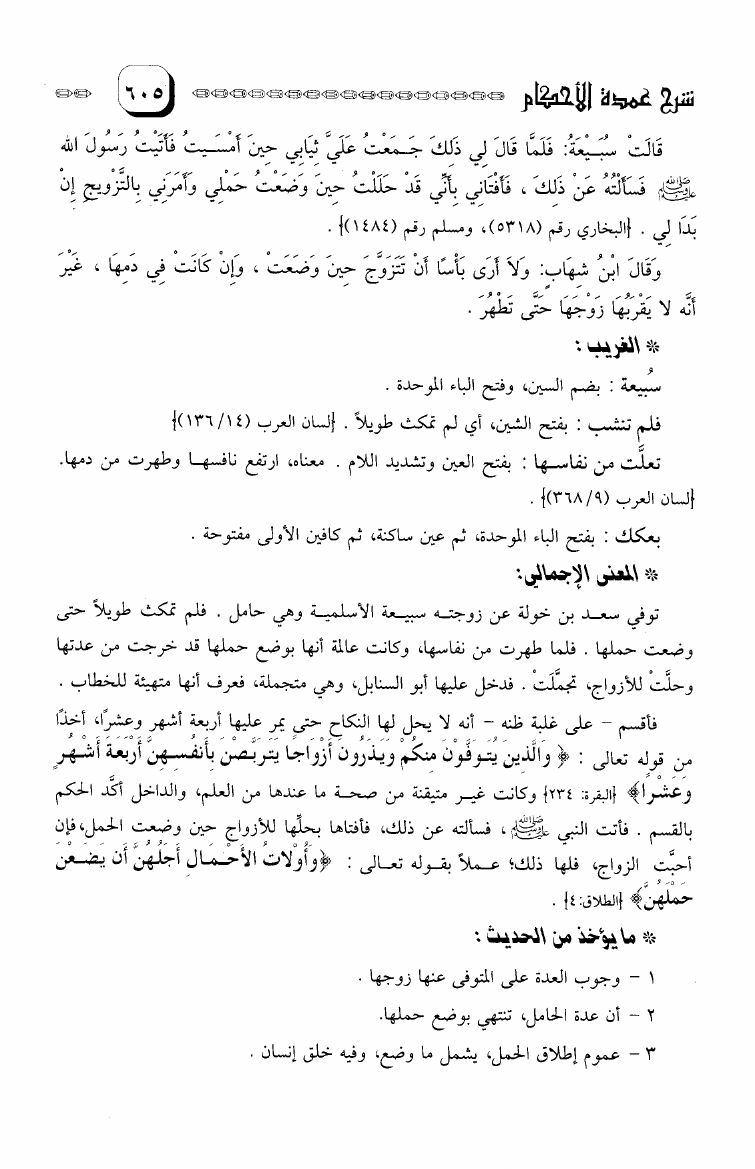 شرح عمدة الأحكام ٦٠٥
قَالَتْ سُبَيْعَةُ: فَلَمَّا قَالَ لِي ذَلِكَ جَمَعْتُ عَلَيَّ ثِيَابِي حِينَ أَمْسَيتُ فَأَتَيْتُ رَسُولَ الله
ﷺ فَسَأَلْتُهُ عَنْ ذَلِكَ ، فَأَفْتَانِي بِأَنِّي قَدْ حَلَلْتُ حِينَ وَضَعْتُ حَمْلِي وَأَمَرَنِي بِالتَّزْوِيجِ إِنْ
بَدَا لِي . {البخاري رقم (٥٣١٨)، ومسلم رقم (١٤٨٤)} .
وَقَالَ ابْنُ شِهَابٍ: وَلاَ أَرَى بَأْسًا أَنْ تَتَزَوَّجَ حِينَ وَضَعَتْ ، وَإِنْ كَانَتْ فِي دَمِهَا ، غَيْرَ
أَنَّه لا يَقْرَبُهَا زَوْجُهَا حَتَّى تَطْهُرَ .
* الغريب :
سُبيعة : بضم السين، وفتح الباء الموحدة .
فلم تنشب : بفتح الشين، أي لم تمكث طويلاً . {لسان العرب (١٣٦/١٤)}
تعلَّت من نفاسها : بفتح العين وتشديد اللام . معناه، ارتفع نافسها وطهرت من دمها.
{لسان العرب (٣٦٨/٩)} .
بعكك : بفتح الباء الموحدة، ثم عين ساكنة، ثم كافين الأولى مفتوحة .
* المعنى الإجمالي:
توفي سعد بن خولة عن زوجته سبيعة الأسلمية وهي حامل . فلم تمكث طويلاً حتى
وضعت حملها . فلما طهرت من نفاسها، وكانت عالمة أنها بوضع حملها قد خرجت من عدتها
وحلَّتْ للأزواج، تجمَّلَتْ . فدخل عليها أبو السنابل، وهي متجملة، فعرف أنها متهيئة للخطاب .
فأقسم – على غلبة ظنه – أنه لا يحل لها النكاح حتى يمر عليها أربعة أشهر وعشرًا، أخذًا
من قوله تعالى : ﴿ وَالَّذِينَ يُتَوَفَّوْنَ مِنكُمْ وَيَذَرُونَ أَزْوَاجًا يَتَرَبَّصْنَ بِأَنفُسِهِنَّ أَرْبَعَةَ أَشْهُرٍ
وَعَشْرًا﴾ {البقرة: ٢٣٤} وكانت غير متيقنة من صحة ما عندها من العلم، والداخل أكَّد الحكم
بالقسم . فأتت النبي ﷺ ، فسألته عن ذلك، فأفتاها بحلِّها للأزواج حين وضعت الحمل، فإن
أحبَّت الزواج، فلها ذلك؛ عملاً بقوله تعالى : ﴿وَأُوْلاتُ الأَحْمَالِ أَجَلُهُنَّ أَن يَضَعْنَ
حَمْلَهُنَّ﴾ {الطلاق:٤} .
* ما يؤخذ من الحديث :
١ – وجوب العدة على المتوفى عنها زوجها .
٢ – أن عدة الحامل، تنتهي بوضع حملها.
٣ – عموم إطلاق الحمل، يشمل ما وضع، وفيه خلق إنسان .